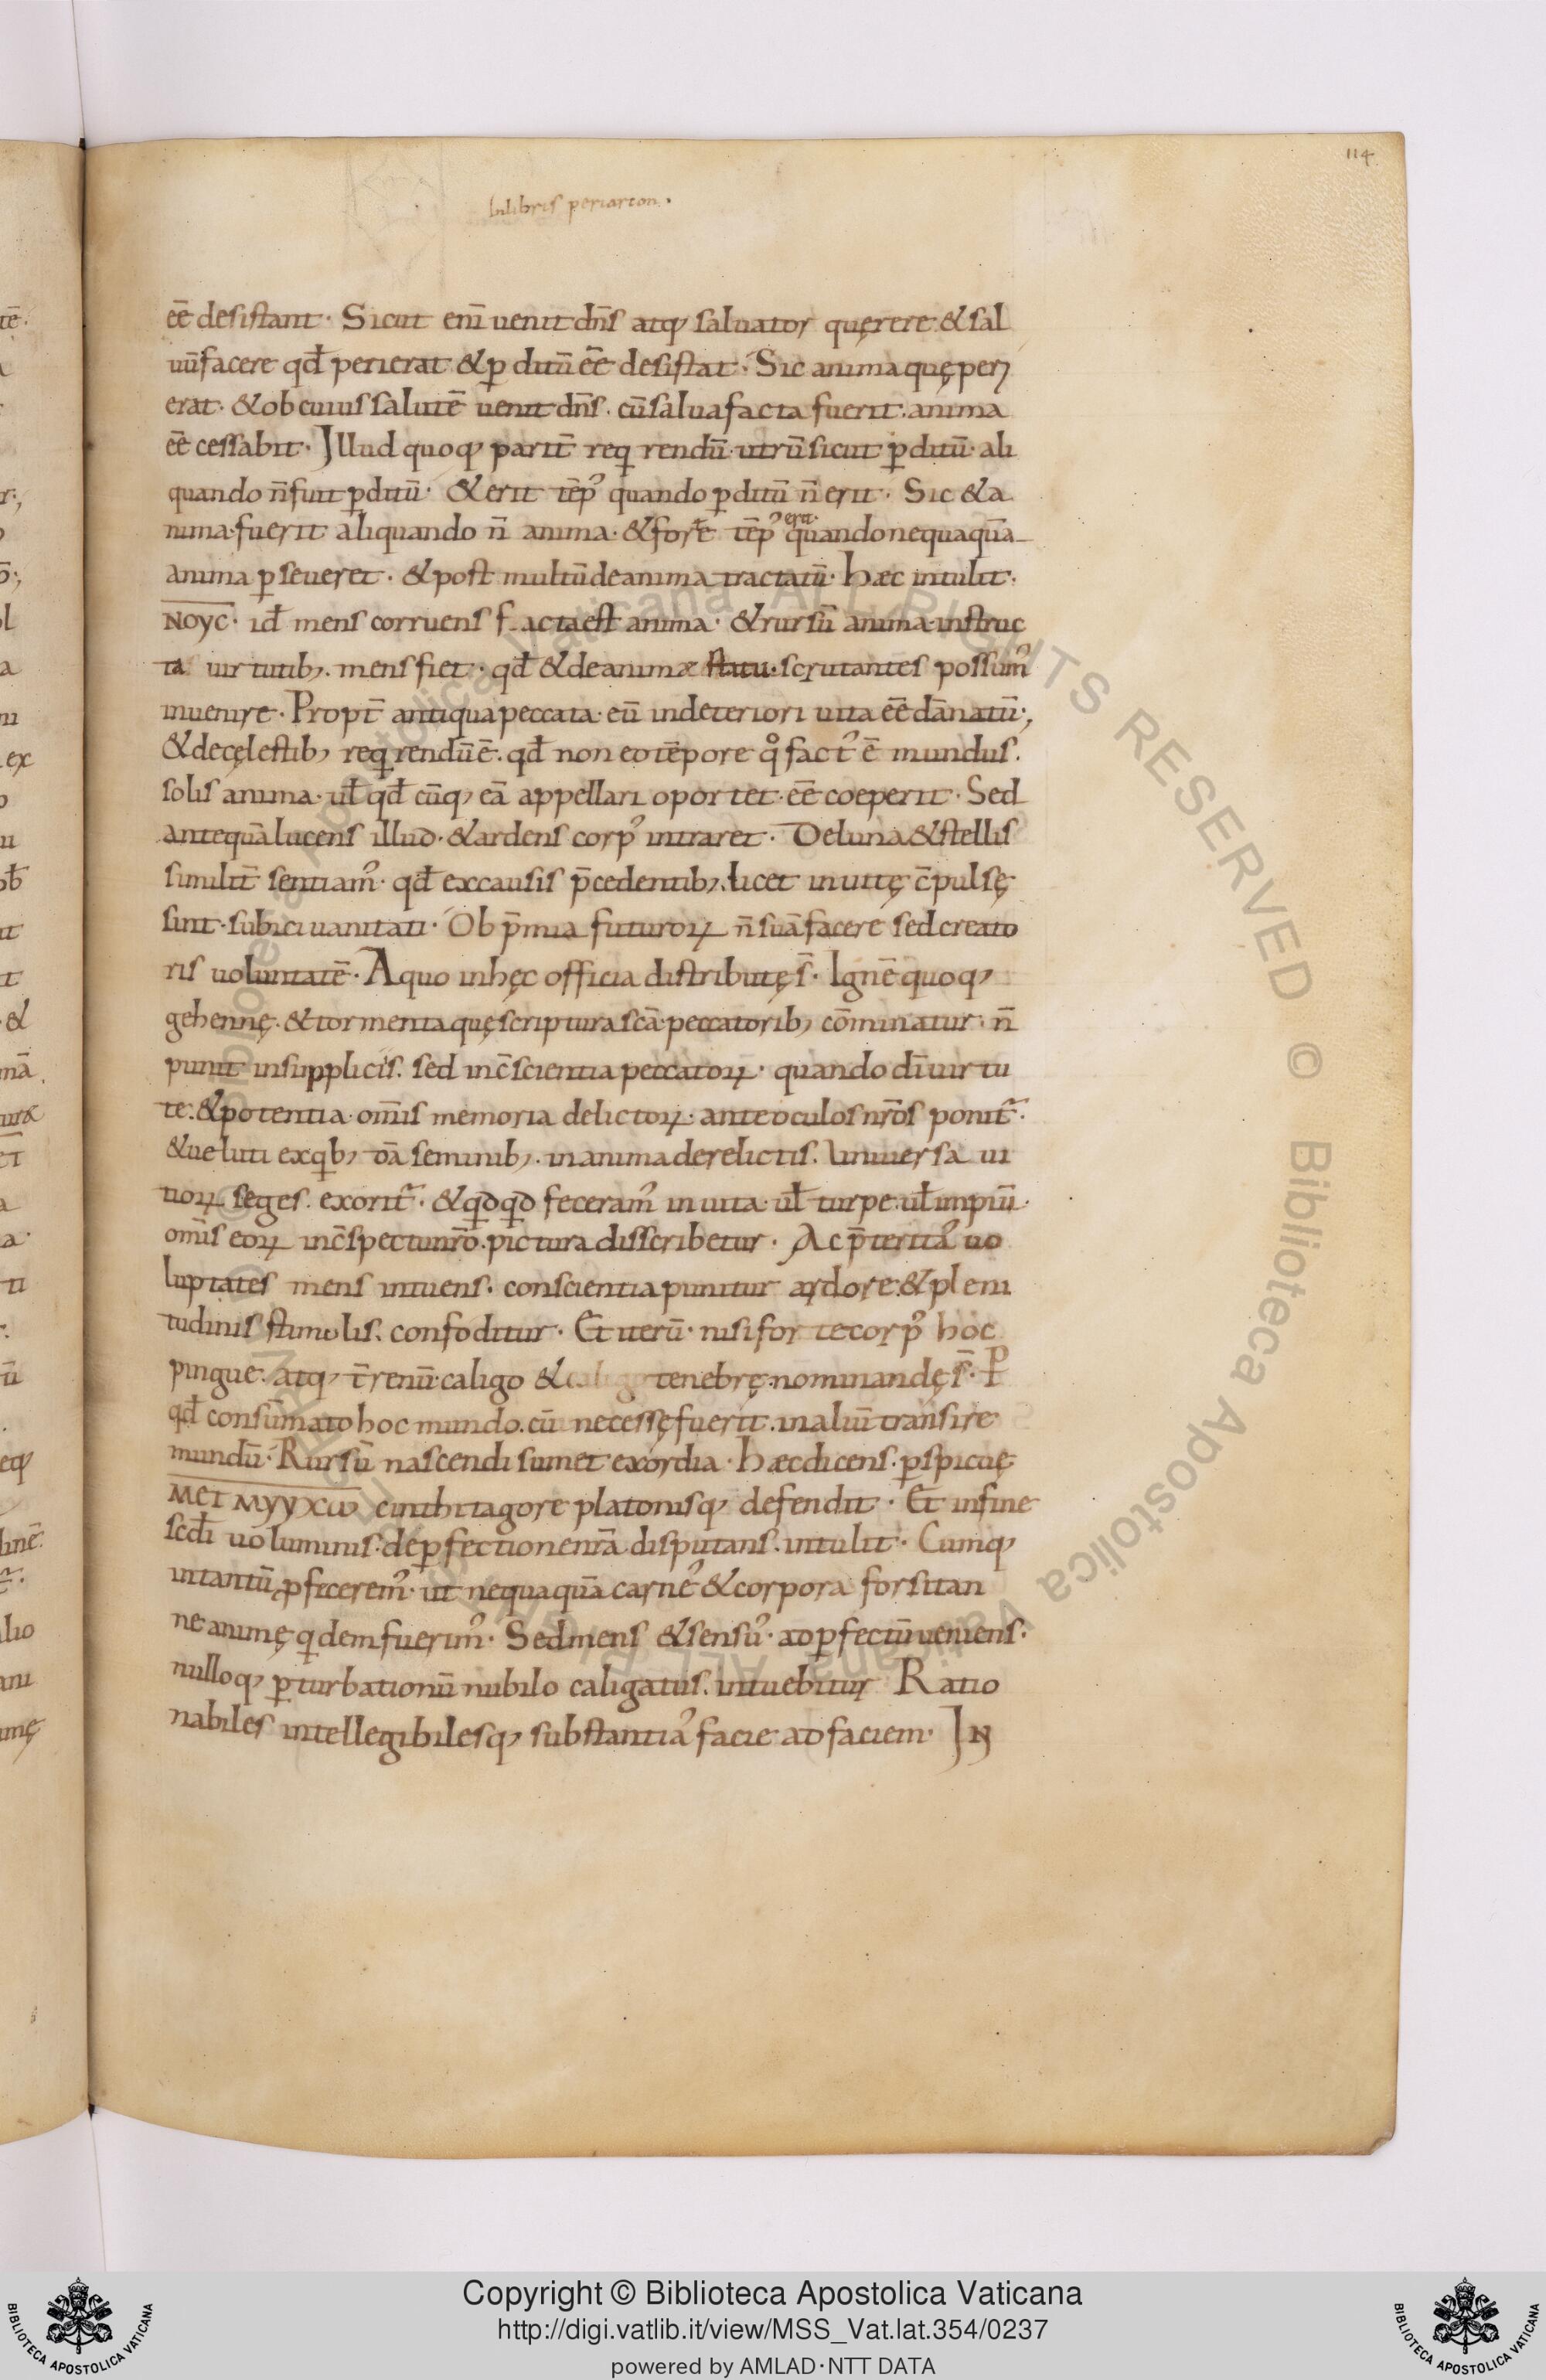 114
In libris periarcon.
eē desistant. Sicut enī uenit dn̄s atq; saluator quęrere & sal
uū facere qđ perierat & ꝑditū eē desistat. Sic anima quę peri
erat. & ob cuius salutē uenit dn̄s. cū salua facta fuerit. anima
eē cessabit. Illud quoq; parit̄ reqrendū utrū sicut ꝑditū. ali
quando n̄ fuit ꝑditū. & erit tēp᾽ quando ꝑditū n̄ erit. Sic & a
nima. fuerit aliquando n̄ anima. & forte tēp᾽ erit quando nequaquā
anima ꝑseueret. & post multū de anima tractatū. hæc intulit.
NOYC. id̄ mens corruens facta est anima. & rursū anima instruc
ta uirtutib; mens fiet. qđ & de animæ statu. scrutantes possum᾽
inuenire. Propt̄ antiqua peccata. eū in deteriori uita eē dānatū;
& de cęlestib; reqrendū ē. qđ non eo tēpore qͦ fact᾽ ē mundus.
solis anima. ul̄ qđ cūq; eā appellari oportet. eē coeperit. Sed
antequā lucens illud. & ardens corp᾽ intraret. De luna & stellis
similit̄ sentiam᾽. qđ ex causis p̄cedentib; licet inuitę c̄pulsę
sint. subici uanitati. Ob p̄mia futuroꝝ n̄ suā facere sed creato
ris uoluntatē. A quo in hęc officia distributę s̄. Ignē quoq;
gehennę. & tormenta quę scriptura sc̄a peccatorib; cōminatur. n̄
punit in suppliciis. sed in c̄scientia peccatoꝝ. quando dī uirtu
te. & potentia. om̄is memoria delictoꝝ. ante oculos nr̄os ponit̄.
& ueluti ex qb; dā seminib;. in anima derelictis. Uniuersa ui
tioꝝ seges. exorit̄. & qdqd feceram᾽ in uita. ul̄ turpe. ul̄ impiū.
om̄is eoꝝ in c̄spectu nr̄o. pictura disscribetur. Ac p̄terita᾽ uo
luptates mens intuens. conscientia punitur ardore. & pleni
tudinis stimulis. confoditur. Et iterū. nisi forte corp᾽ hoc
pingue. atq; t̄renū. caligo & caligo tenebrę. nominandę s̄. P
qđ consūmato hoc mundo. cū necessę fuerit. in aliū transire
mundū. Rursū nascendi sumet exordia. hæc dicens. ꝑspicuę
MET MYYXCω einthitagore platonisq; defendit. Et in fine
scd̄i uoluminis. de ꝑfectione nr̄ā disputans. intulit. Cumq;
intantū ꝓfecerem᾽. ut nequaquā carne᾽ & corpora forsitan
ne animę qdem fuerim᾽. Sed mens & sensu᾽. ad ꝑfectū ueniens.
nulloq; ꝑturbationū nubilo caligatus. intuebitur Ratio
nabiles intellegibilesq; substantia᾽ facie ad faciem. IN
Copyright © Biblioteca Apostolica Vaticana
http://digi.vatlib.it/view/MSS_Vat.lat.354/0237
powered by AMLAD·NTT DATA